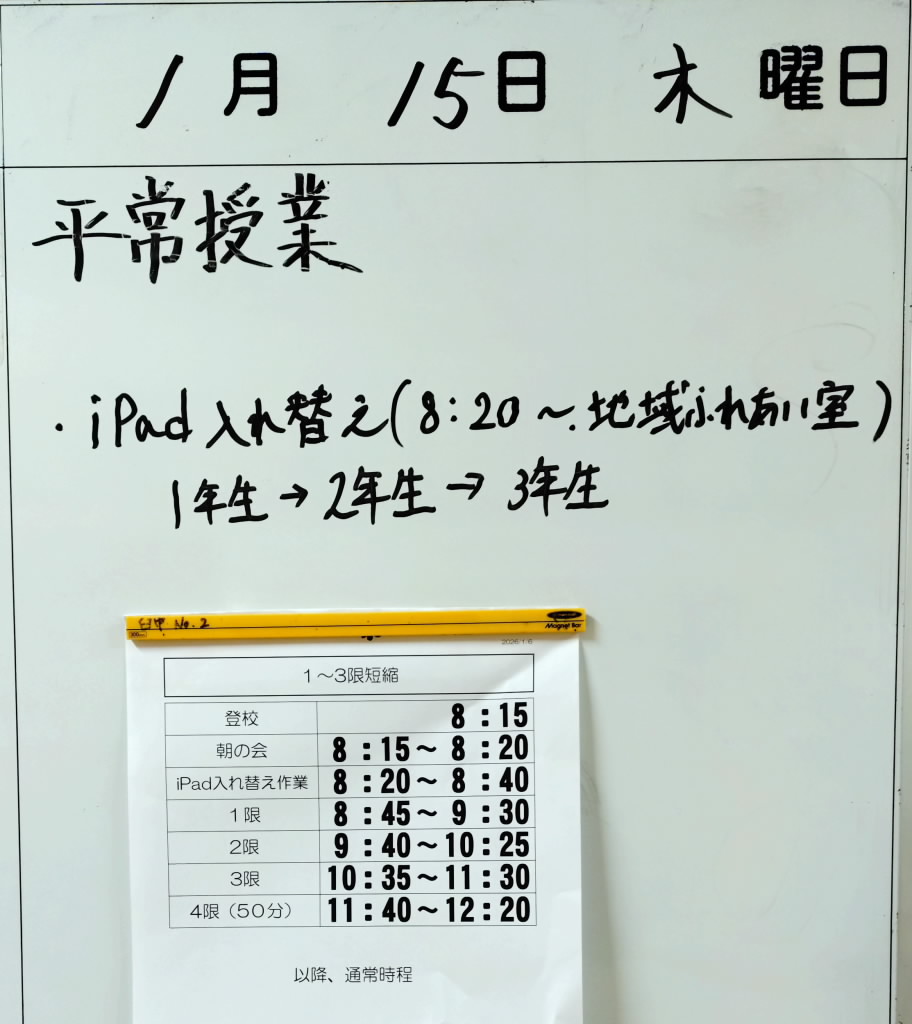 1月 15日 木曜日
平常授業
・iPad入れ替え(8:20〜.地域ふれあい室)
1年生→2年生→3年生
No.2
300mm
Magnet Bar
2026/1/6
1〜3限短縮
登校 8:15
朝の会 8:15〜8:20
iPad入れ替え作業 8:20〜8:40
1限 8:45〜9:30
2限 9:40〜10:25
3限 10:35〜11:30
4限(50分) 11:40〜12:20
以降、通常時程